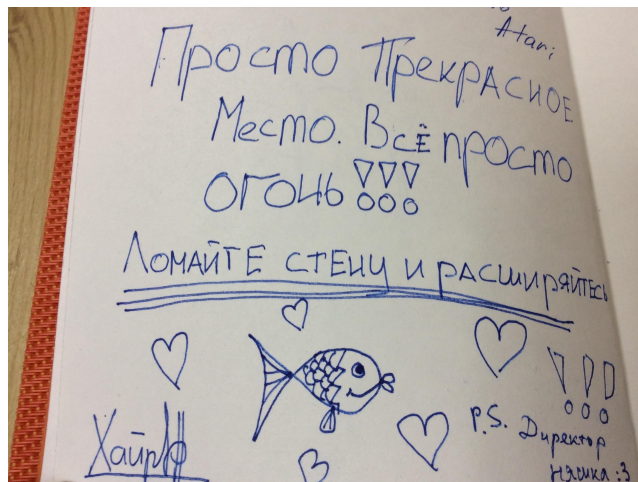 Atari
Просто Прекрасное
Место. Всё просто
огонь!!!
Ломайте стену и расширяйтесь
!!!
P.S. Директор
няшка :3